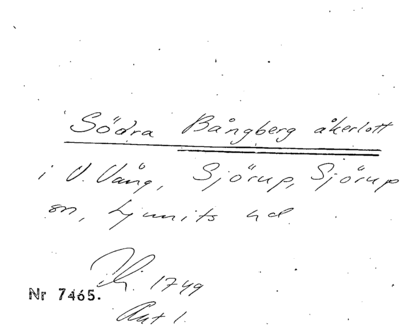 Södra Bångberg åkerlott
i V. Vång, Sjörup, Sjörup
sn, Ljunits hd.
1749
Nr 7465.
Akt 1.